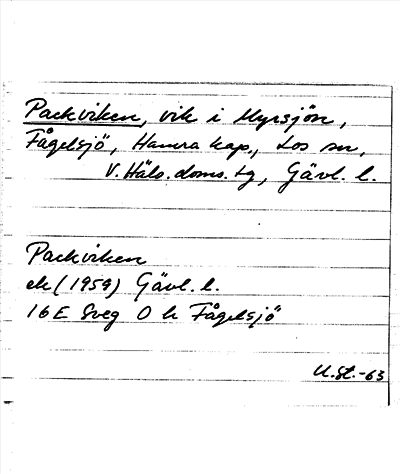 Packviken, vik i Myrsjön,
Fågelsjö, Hamra kap., Los sn,
V. Häls. doms. tg, Gävl. l.
Packviken
ek (1959) Gävl. l.
16E Sveg O k Fågelsjö
U.St.-63